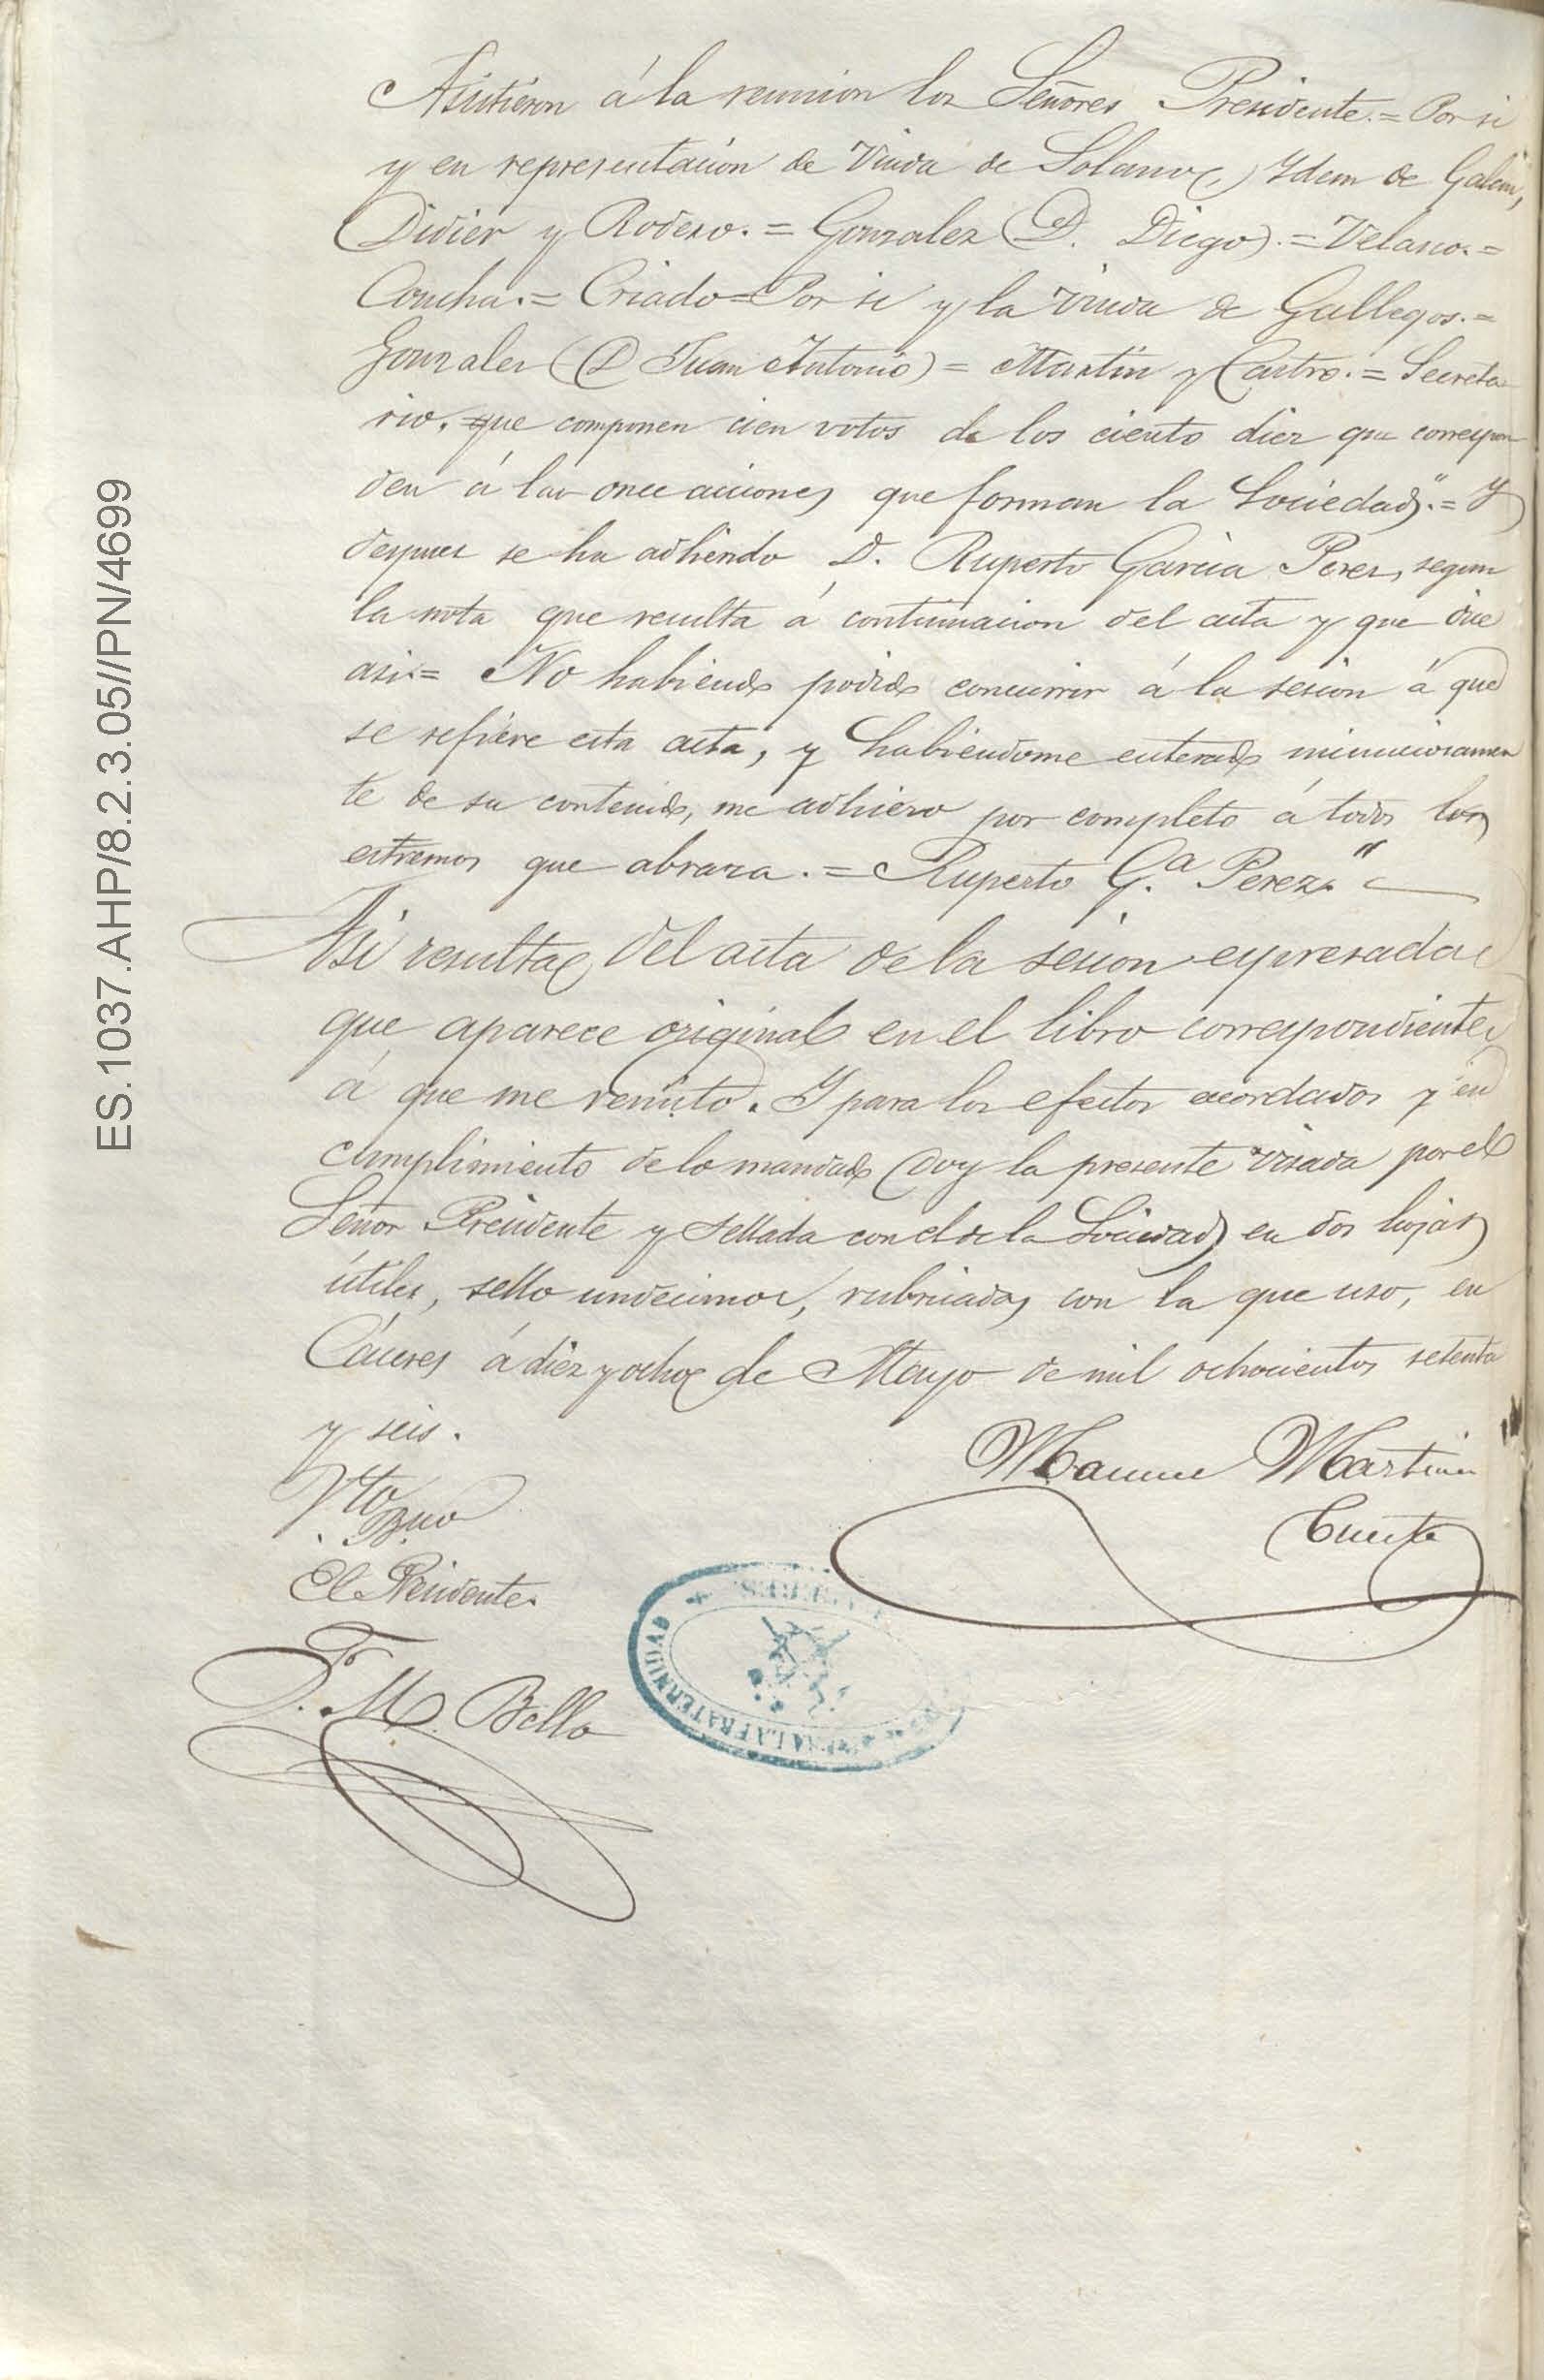 Asistieron á la reunion los Señores Presidente.= Por si
y en representacion de Viuda de Solano, Ydem de Galan,
Didier y Rodero.= Gonzalez (D. Diego).= Velasco.=
Concha.= Criado= Por si y la viuda de Gallegos.=
Gonzalez (D Juan Antonio)= Martin y Castro.= Secreta
rio. que componen cien votos de los ciento diez que correspon
den á las once acciones que forman la Sociedad".= Y
despues se ha adherido D. Ruperto Garcia Perez, segun
la nota que resulta á continuacion del acta y que dice
asi.= No habiendo podido concurrir á la sesion á que
se refiere esta acta, y habiendome enterado minuciosamen
te de su contenido, me adhiero por completo á todos los
estremos que abraza.= Ruperto G.ª Perez."
Asi resulta del acta de la sesion espresada
que aparece original en el libro correspondiente
á que me remito. Y para los efectos acordados y en
cumplimiento de lo mandado doy la presente visada por el
Señor Presidente y sellada con el de la Sociedad en dos hojas
útiles, sello undecimo, rubricadas con la que uso, en
Cáceres á diez y ocho de Mayo de mil ochocientos setenta
y seis.
Vto
Bno
El Presidente.
F. M. Bello
Manuel Martin
Cuesta
LA FRATERNIDAD
ES.1037.AHP/8.2.3.05//PN/4699